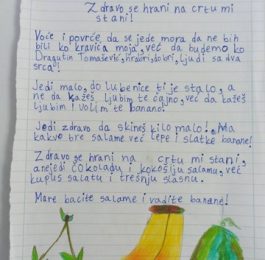 Zdravo se hrani na crtu mi
stani!
Voće i povrće da se jede mora da ne bih
bili ko kravica moja, već da budemo ko
Dragutin Tomašević, hrabri, dobri, ljudi sa dva
srca!
Jedi malo, do lubenice ti je stalo, a
ne da kažeš ljubim te čajno, već da kažeš
ljubim i volim te banano!
Jedi zdravo da skineš kilo malo! Ma
kakve bre salame već lepe i slatke banane!
Zdravo se hrani na crtu mi stani,
a nejedi čokoladu i kokošiju salamu, već
kupus salatu i trešnju slasnu.
Mare bacite salame i vadite banane!